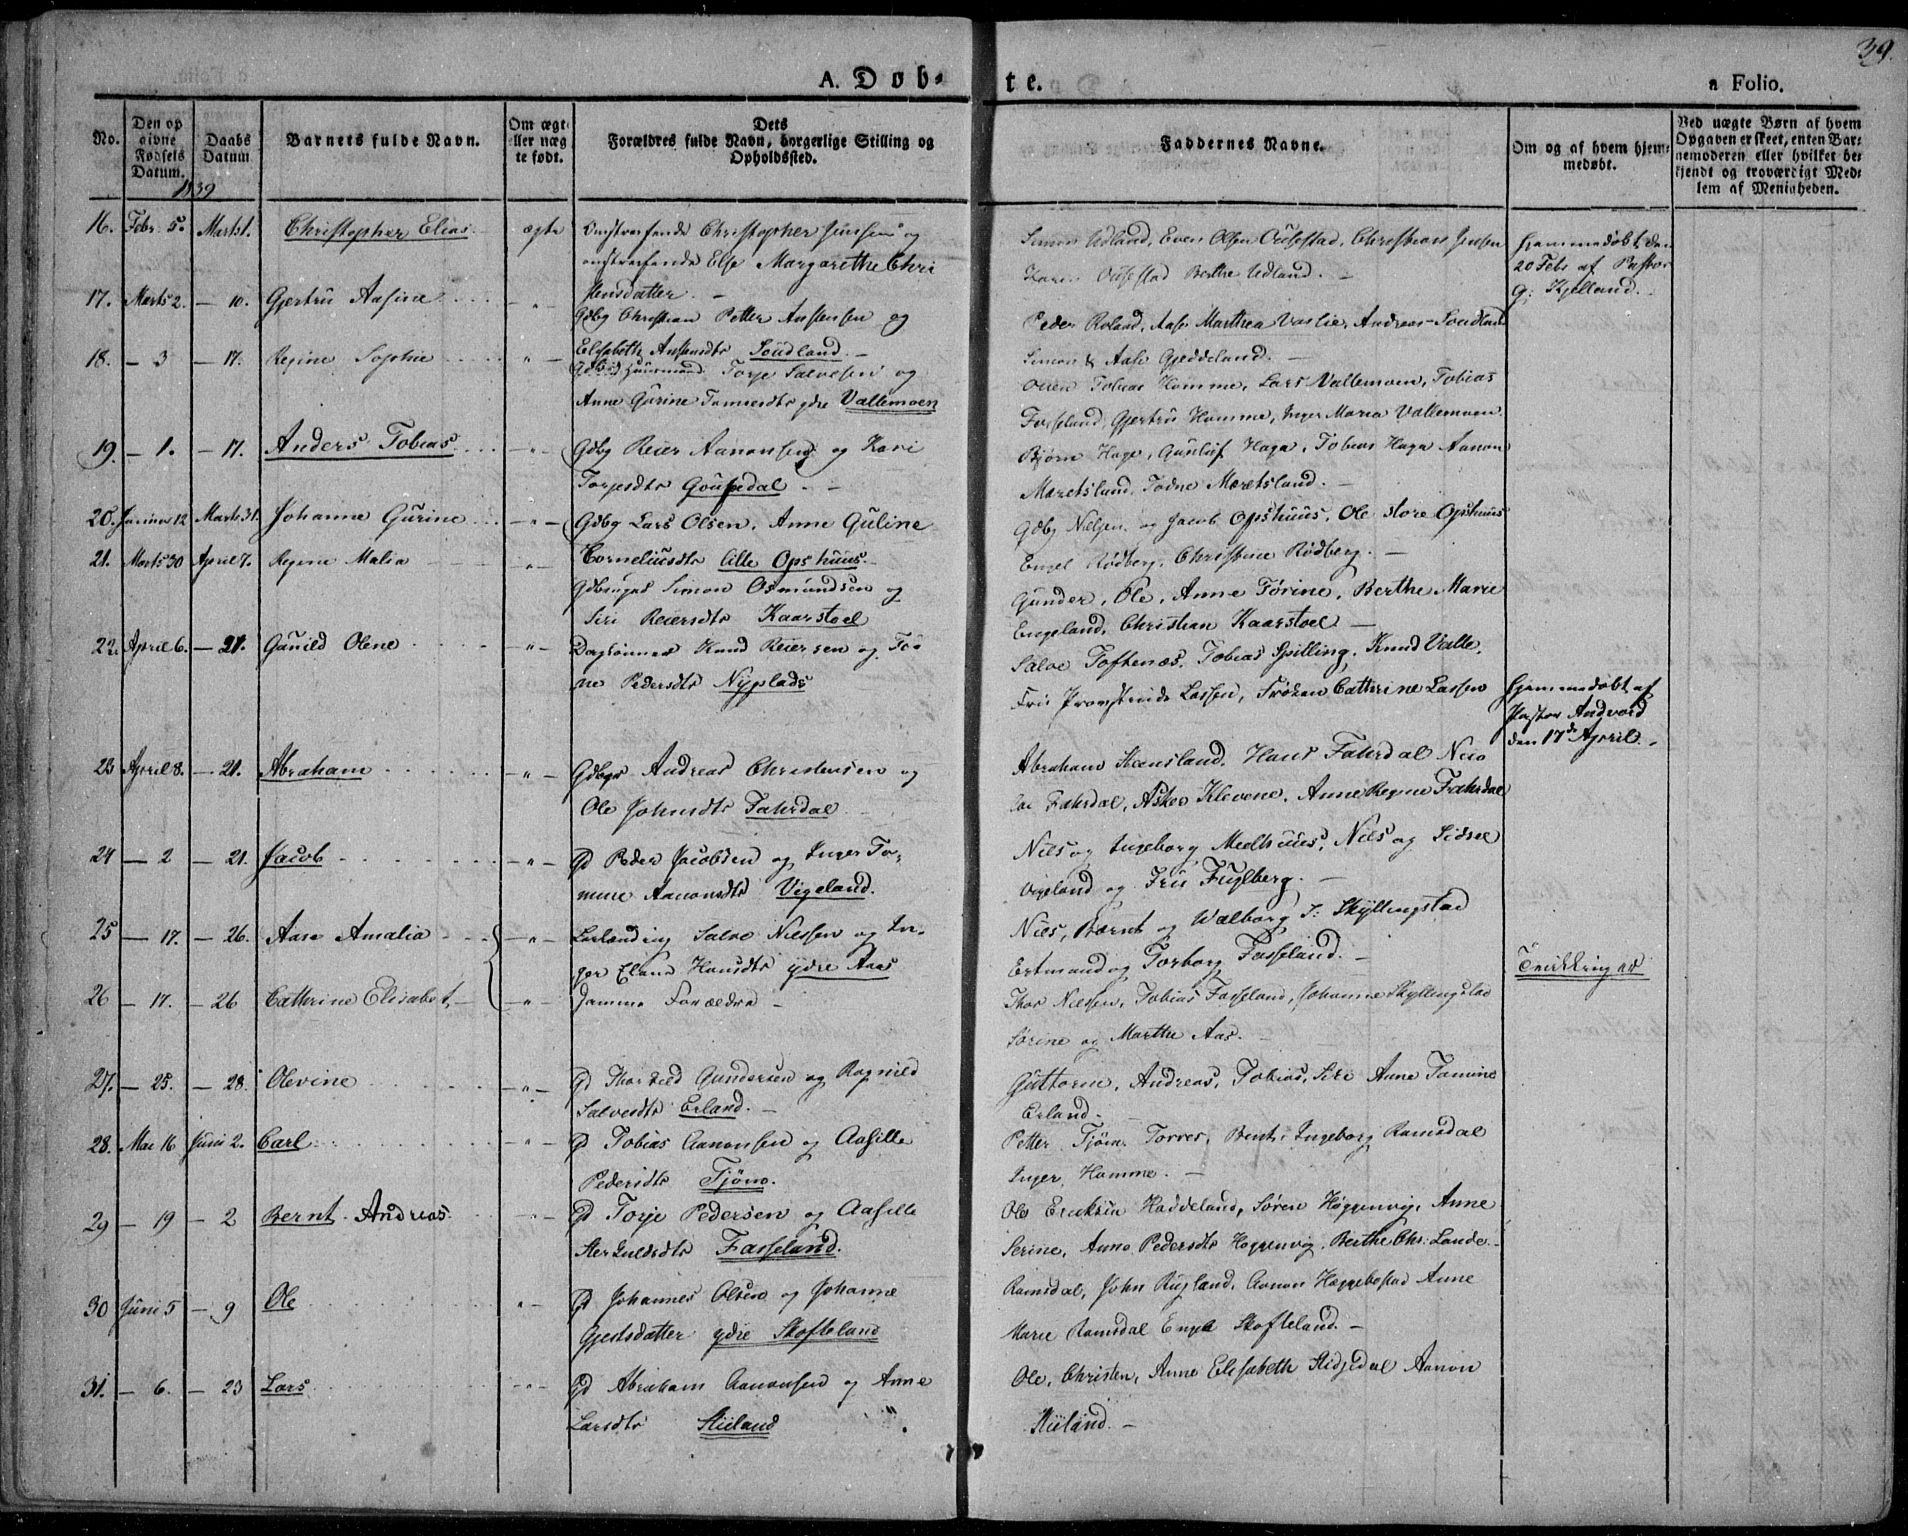 39.
A. Døb-
te.
a Folio.
No.
Den op
givne
Fødsels
Datum.
Daabs
Datum.
Barnets fulde Navn.
Om ægt-
eller uæg
te født.
Dets
Forældres fulde Navn, borgerlige Stilling og
Opholdssted.
Faddernes Navne.
Om og af hvem hjem-
medøbt.
Ved uægte Børn af hvem
Opgaven er skeet, enten Bar-
nemoderen eller hvilket be-
kjendt og troværdigt Med-
lem af Menigheden.
1839
16. Febr. 5. Marts 1. Christopher Elias ægte Omstreifende Christopher Jensen og
omstreifende Else Margarethe Chri
stensdatter.
Simon Udland, Even Olsen, Christian Jensen
Berthe Udland.
Hjemmedøbt den
20 Febr af Pastor
G: Kjelland.
17. Marts 2. – 10. Gjertru Aasine " Gdbg Christian Petter Ansensen og
Elisabeth Ansensdtr Soudland.
Peder Roland, Aase Marthea, Andreas Soudland
Simon & Aase Gjeddeland.
18. – 3 – 17. Regine Sophie " Huusmand Torje Salvesen og
Anne Gurine Tomesdtr ydre Vallemoen
Tobias Homme, Lars Vallemoen, Tobias
Fasseland, Gjertru Homme, Inger Maria Vallemoen.
19. – 1. – 17. Anders Tobias " Gdbg Reier Aanonsen og Kari
Torjesdtr Goupedal
Bjørn Haga, Gunluf Haga, Tobias Haga Aanon
Moretsland, Todne Moretsland.
20. Januar 12 Marts 31. Johanne Gurine " Gdbg Lars Olsen, Anne Guline
Corneliusdtr lille Opshuus.
Gdbg Nelsen og Jacob Opshuus, Ole store Opshuus
Engel Rødberg, Christine Rødberg.
21. Marts 30 April 7. Regine Malia " Simon Osmundsen og
Siri Reiersdtr Kaarstoel
Gunder, Ole, Anne Tørine, Berthe Marie
Engeland, Christian Kaarstoel
22. April 6. – 21. Gunild Olene " Knud Reiersen og To-
ne Pedersdtr Nyplads
Salve Toftenæs, Tobias Spilling, Knud Valle,
Fru Provstinde Lassen, Frøken Cathrine Lassen
Hjemmedøbt af
Pastor Andvord
den 17de April.
23 April 8. – 21. Abraham " Andreas Christensen og
Ole Johnsdtr Fahrdal
Abraham Stensland, Hans Fahrdal
Fahrdal, Asker Klevene, Anne Regine Fahrdal
24 – 2 – 21. Jacob " G Peder Jacobsen og Inger To-
mine Aanonsdtr Vigeland.
Niels og Ingeborg Medhuus, Niels og Sidsel
Vigeland og Fru Fuglberg.
25 – 17. – 26. Aase Amalia " Salve Nielsen og In-
ger Elene Hansdtr ydre Aas
Niels, Bernt og Walborg S: Skyllingstad
Ertmand og Torborg Fasseland.
Tvillinger
26 – 17. – 26 Cathrine Elisabet " Samme Forældre
Thor Nielsen, Tobias Fasseland, Johanne Skyllingstad
Sørine og Marthe Aas.
27. – 25. – 28. Olevine " G Thorkild Gundersen og Ragnild
Salvesdtr Erland.
Guttorm, Andreas, Tobias, Siri Anne Tomine
Erland.
28. Mai 16 Juni 2. Carl " G Tobias Aanonsen og Aasille
Pedersdtr Tjøm.
Petter Tjøm Torres, Bent, Ingeborg Ramsdal
Inger Homme.
29 – 19 – 2 Bernt Andreas " G Torje Pedersen og Aasille
Fasseland.
Ole Eriksen Haddeland, Søren Høggenvig, Anne
Serine, Anne Pedersdtr Høggenvig, Berthe Chr: Lande
30 Juni 5 – 9 Ole " G Johannes Olsen og Johanne
Gjertsdatter ydre Skofteland
Ramsdal, John Rugland, Aanon Heggebostad Anne
Marie Ramsdal Engel Skofteland.
31. – 6. – 23 Lars " G Abraham Aanonsen og Anne
Larsdtr Stuland
Ole, Christen, Anne Elisabeth Aanon
Stuland.